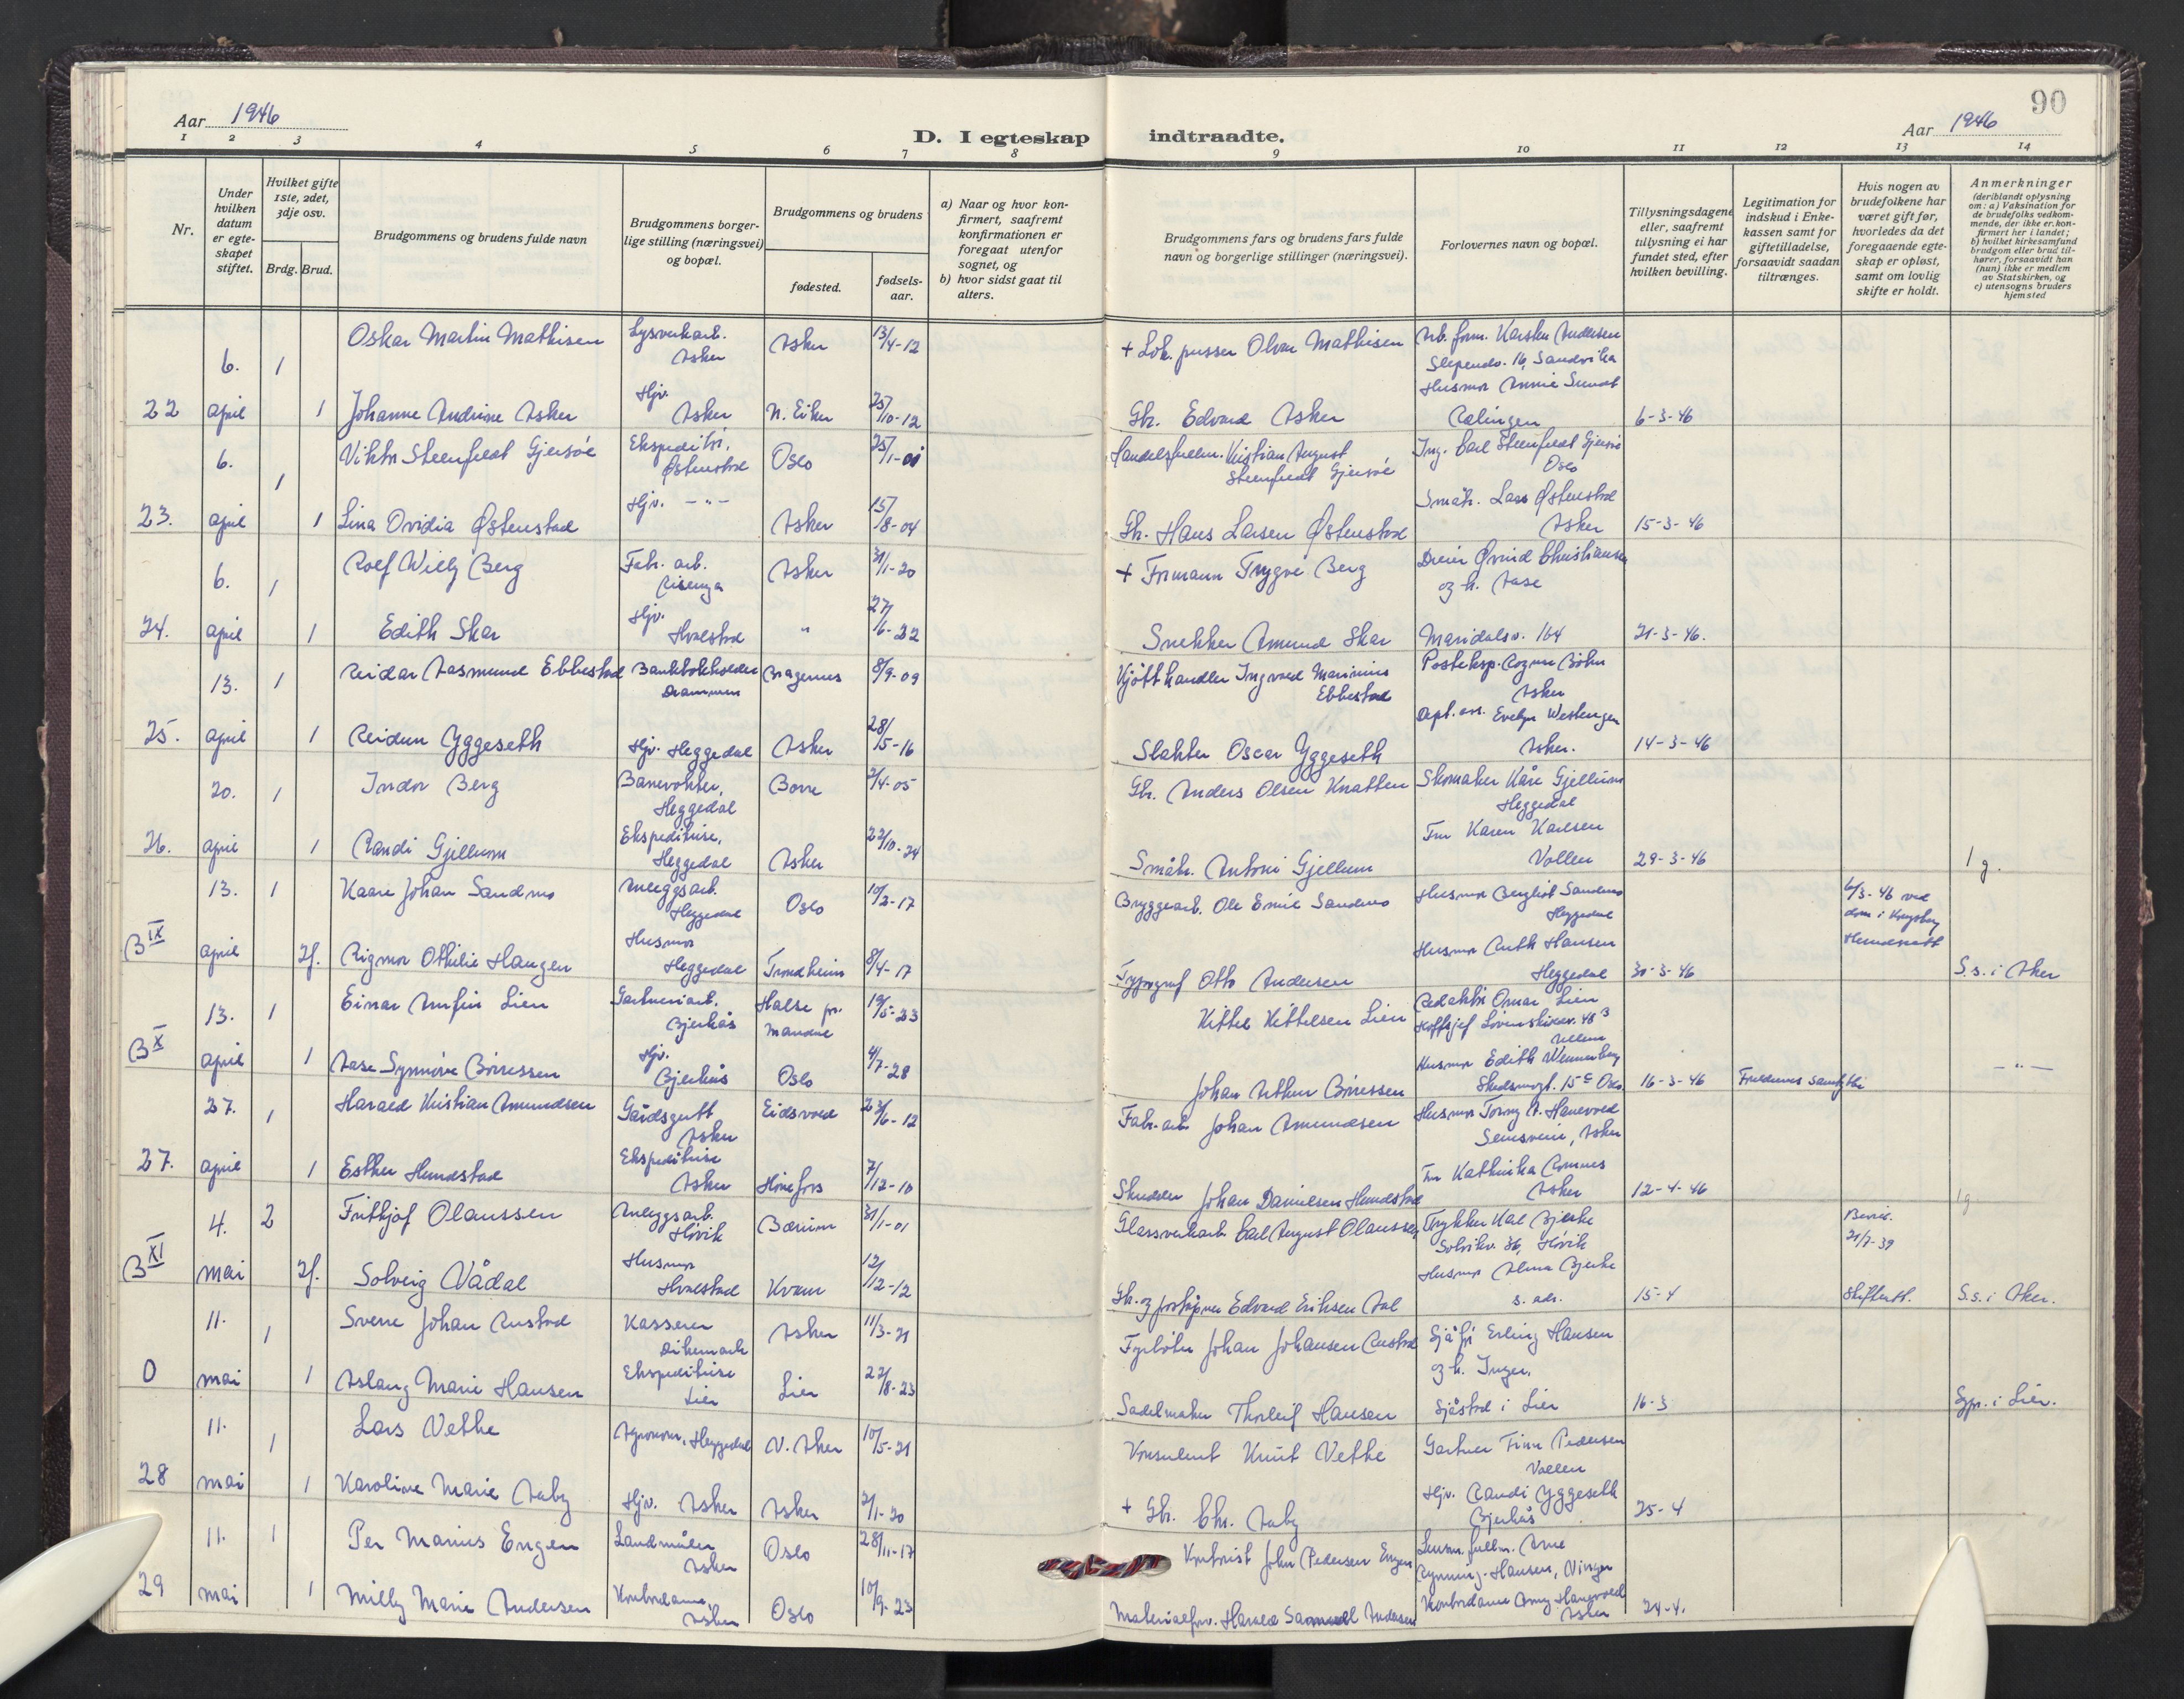 90
Aar 1946
D. I egteskap indtraadte.
Aar 1946
1 2 3 4 5 6 7 8 9 10 11 12 13 14
Nr.
Under hvilken datum er egteskapet stiftet.
Hvilket gifte 1ste, 2det, 3dje osv.
Brdg. Brud.
Brudgommens og brudens fulde navn
Brudgommens borgerlige stilling (næringsvei) og bopæl.
Brudgommens og brudens
fødested.
fødselsaar.
a) Naar og hvor konfirmert, saafremt konfirmationen er foregaat utenfor sognet, og
b) hvor sidst gaat til alters.
Brudgommens fars og brudens fars fulde navn og borgerlige stillinger (næringsvei).
Forlovernes navn og bopæl.
Tillysningsdagene eller, saafremt tillysning ei har fundet sted, efter hvilken bevilling.
Legitimation for indskud i Enkekassen samt for giftetilladelse, forsaavidt saadan tiltrænges.
Hvis nogen av brudefolkene har været gift før, hvorledes da det foregaaende egteskap er opløst, samt om lovlig skifte er holdt.
Anmerkninger
(deriblandt oplysning om: a) Vaksination for de brudefolks vedkommende, der ikke er konfirmert her i landet; b) hvilket kirkesamfund brudgom eller brud tilhører, forsaavidt han (hun) ikke er medlem av Statskirken, og c) utensogns bruders hjemsted
6. 1 Oskar Martin Mathisen Lysverkarb. Asker Asker 13/4-12 + Lok. pusser Olvar Mathisen Arb. form. Karsten Andersen
Slependv. 16, Sandvika
Husmor Annie Sundt
22 april 1 Johanne Andrine Asker Hjv. Asker N. Eiker 25/10-12 Gbr. Edvard Asker Rælingen 6-3-46
6. 1 Viktor Steenfeldt Gjersøe Ekspeditør, Østenstad Oslo 25/1-01 Handelsfullm. Kristian August Steenfeldt Gjersøe Ing. Carl Steenfeldt Gjersøe Oslo
23. april 1 Lina Ovidia Østenstad Hjv. -"- Asker 15/8-04 Gbr. Hans Larsen Østenstad Småbr. Lars Østenstad Asker 15-3-46
6. 1 Rolf Willy Berg Fabr. arb. Risenga Asker 31/1-20 + Formann Trygve Berg Dreier Øivind Christiansen og h. Aase
24. april 1 Edith Skar Hjv. Hvalstad " 27/6-22 Snekker Amund Skar Maridalsv. 164 21-3-46.
13. 1 Reidar Aasmund Ebbestad Bankbokholder Drammen Bragernes 8/9-09 Kjøtthandler Ingvald Marinius Ebbestad Posteksp. Ragnar Böhn Asker
25. april 1 Reidun Yggeseth Hjv. Heggedal Asker 28/5-16 Slakter Oscar Yggeseth Dept. ass. Evelyn Westengen Asker. 14-3-46
20. 1 Indor Berg Banevokter, Heggedal Borre 2/4-05 Gbr. Anders Olsen Knatten Skomaker Kåre Gjellum Heggedal
26. april 1 Randi Gjellum Ekspeditrise, Heggedal Asker 22/10-24 Småbr. Antoni Gjellum Fru Karen Karlsen Vollen 29-3-46
13. 1 Kaare Johan Sandmo Anleggsarb. Heggedal Oslo 10/2-17 Bryggearb. Ole Emil Sandmo Husmor Bergliot Sandmo Heggedal 6/3-46 ved dom i Kongsberg Herredsrett 1 g.
B IX april 2f. Rigmor Othilie Haugen Husmor Heggedal Trondheim 8/4-17 Typograf Otto Andersen Husmor Ruth Hansen Heggedal 30-3-46 S.s. i Aker
13. 1 Einar Arnfin Lien Gartneriarb. Bjerkås Halse pr. Mandal 19/5-23 Kittel Kittelsen Lien Redaktør Omar Lien
Hoffsjef Løvenskioldsv. 48 B Ullern
B X april 1 Aase Synnöve Börresen Hjv. Bjerkås Oslo 4/7-28 Johan Arthur Börresen Husmor Edith Wennerberg
Skedsmogt. 15 c Oslo 16-3-46 Foreldrenes samtykke -"-
27. 1 Harald Kristian Amundsen Gårdsgutt Asker Eidsvold 23/6-12 Fabr. arb Johan Amundsen Husmor Torny A. Hanevold
Semsveien, Asker
27. april 1 Esther Hundstad Ekspeditrise Asker Hönefoss 7/12-10 Skredder Johan Danielsen Hundstad Fru Kathinka Romnes Asker 12-4-46
4. 2 Frithjof Olaussen Anleggsarb. Høvik Bærum 31/1-01 Glassverkarb Carl August Olaussen Trykker Karl Bjerke
Solvikv. 36, Høvik Bevil. 21/7-39 1g
B XI mai 2f. Solveig Vådal Husmor Hvalstad Kvam 12/12-12 Gbr. og poståpner Edvard Eriksen Aal Husmor Alma Bjerke s. adr. 15-4 Skifteatt. S.s. i Aker.
11. 1 Sverre Johan Rustad Kasserer Dikemark Asker 11/3-21 Fyrbøter Johan Johansen Rustad Sjåfør Erling Hansen
og h. Inger.
0 mai 1 Aslaug Marie Hansen Ekspeditrise Lier Lier 22/8-23 Sadelmaker Thorleif Hansen Sjåstad i Lier 16-3 Sgpr. i Lier.
11. 1 Lars Vethe Agronom, Heggedal V. Aker 10/5-21 Konsulent Knut Vethe Gartner Finn Pedersen Vollen
28 mai 1 Karoline Marie Aaby Hjv. Asker Asker 2/1-20 + Gbr. Chr. Aaby Hjv. Randi Yggeseth Bjerkås 25-4
11. 1 Per Marius Engen Landmåler Asker Oslo 28/11-17 Kontorist John Pedersen Engen Lensm. fullm. Arne Rynning-Hansen, Vinger
29 mai 1 Milly Marie Andersen Kontordame, Asker Oslo 10/9-23 Materialforv. Harald Samuel Andersen Kontordame Amy Hanevold Asker 24-4.